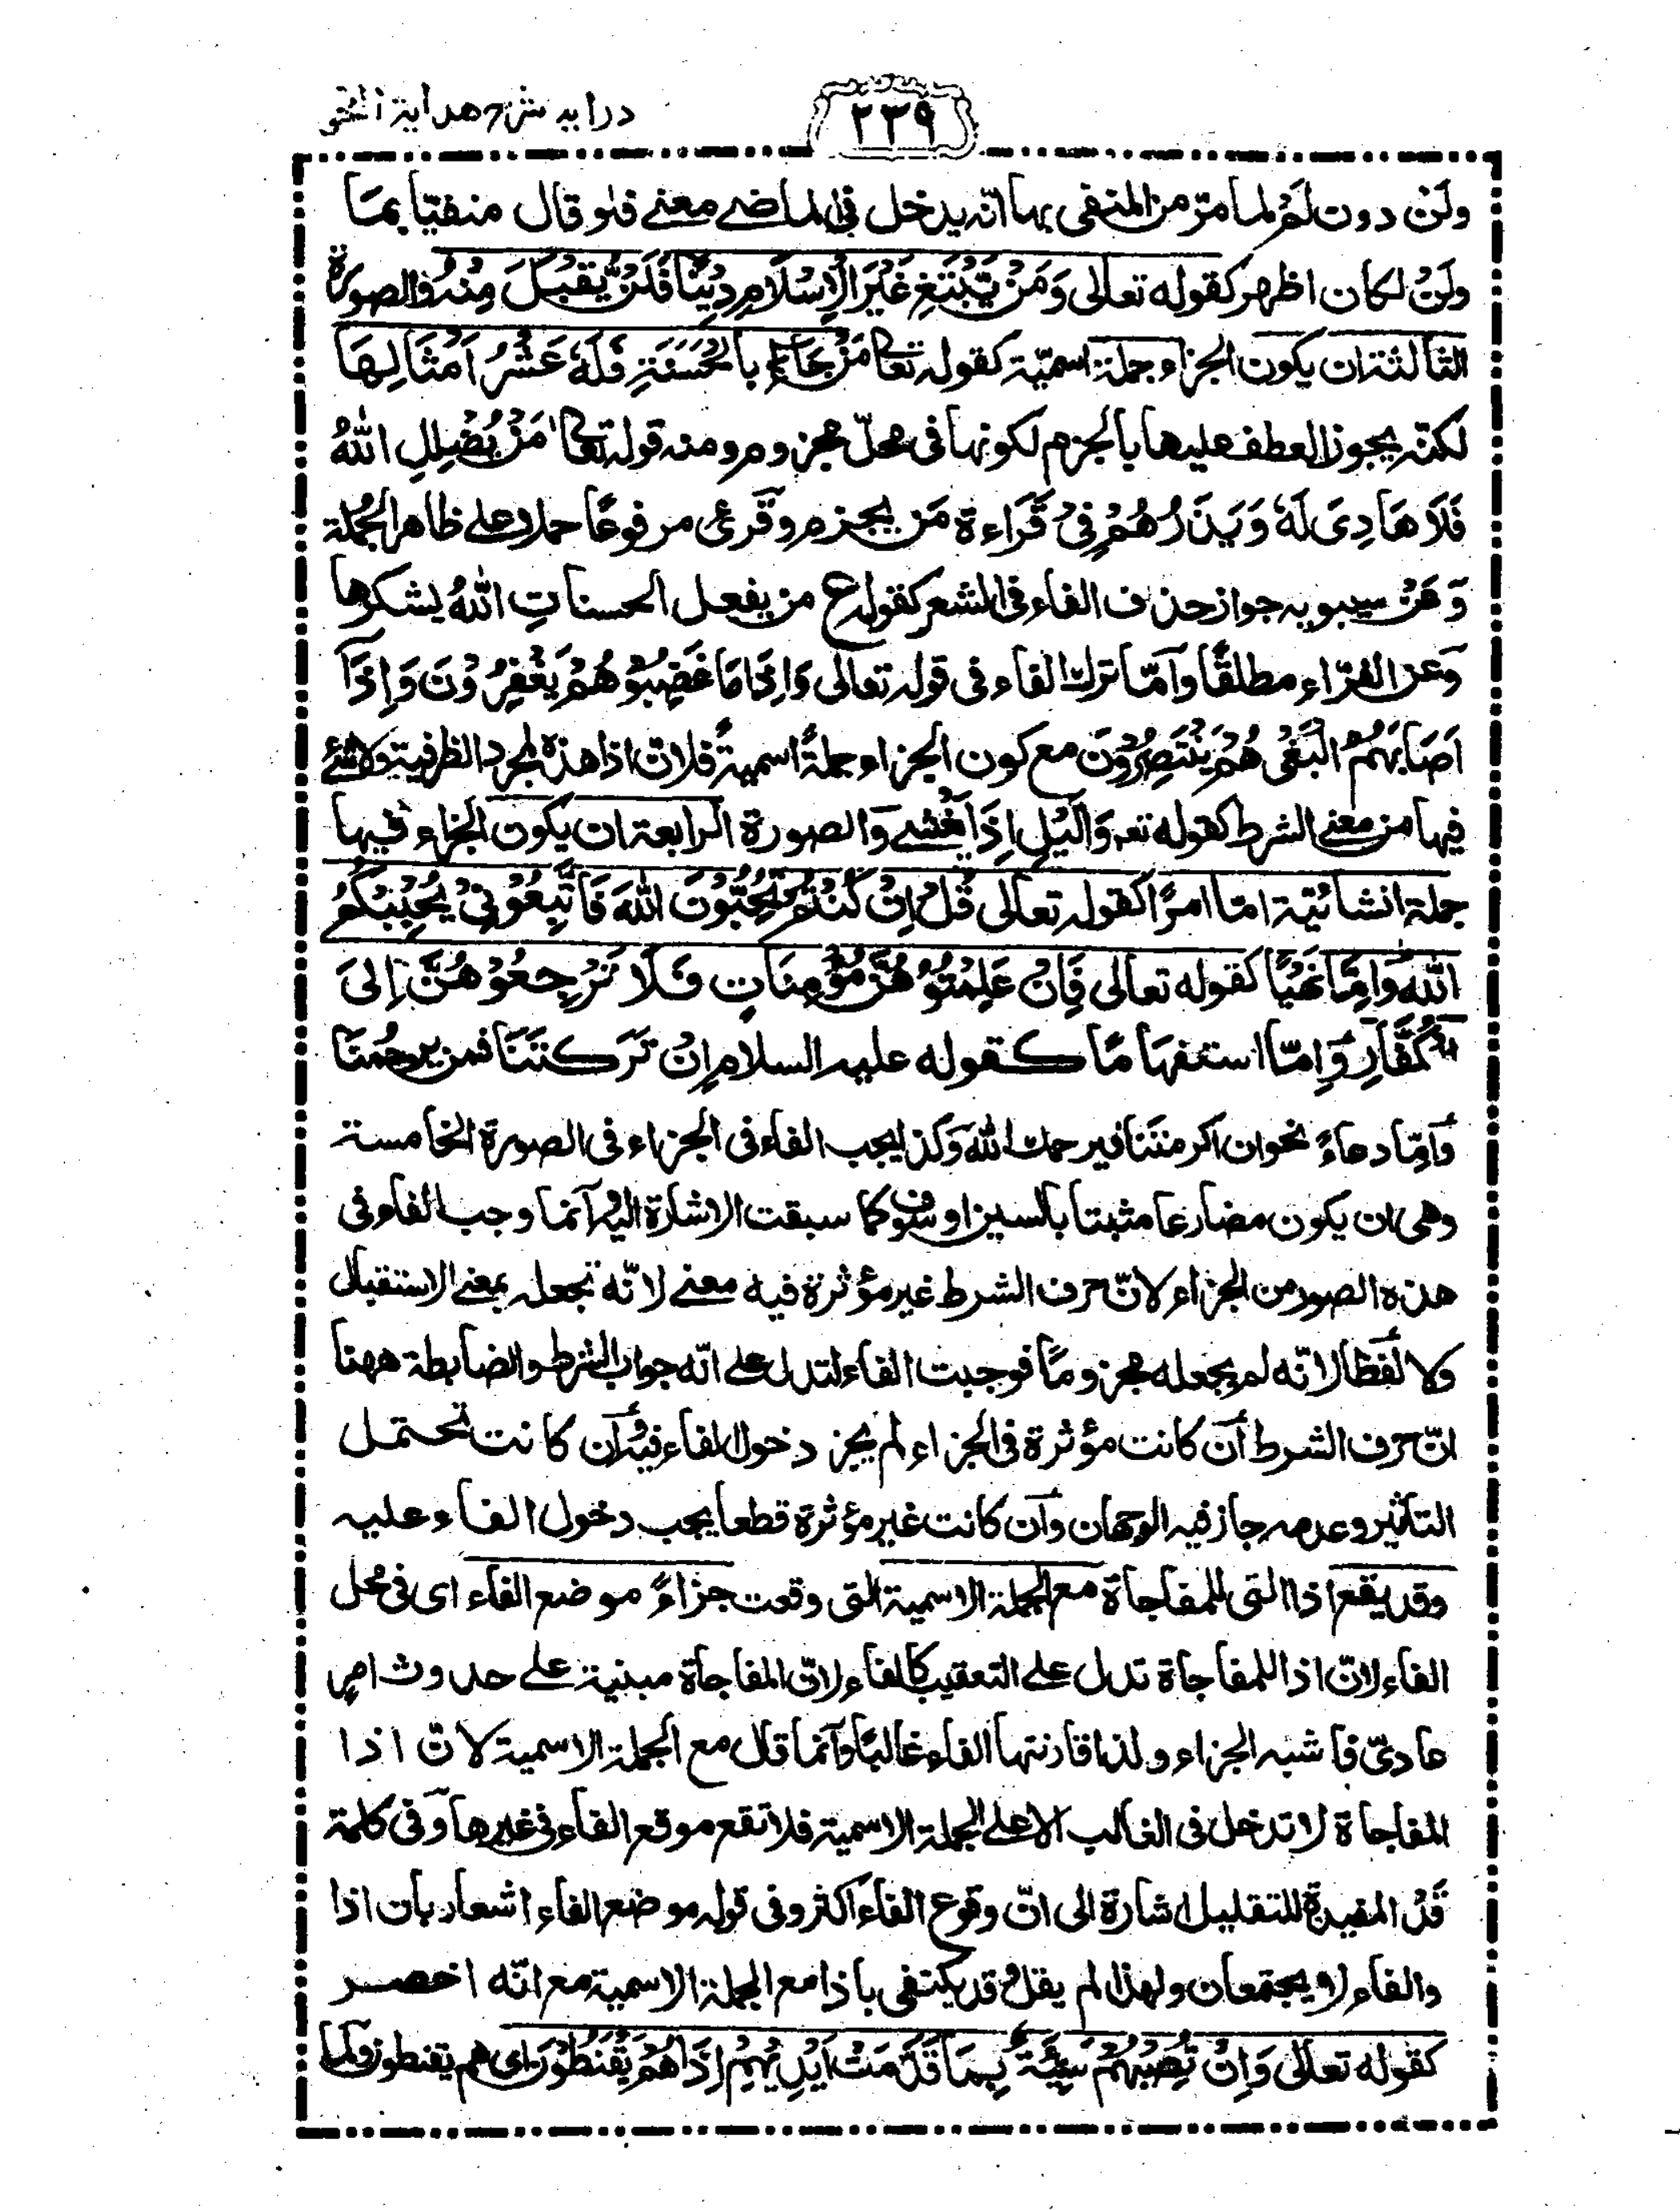 درايه شرح هداية النحو
٢٣٩
ولَنْ دون لَمْ لما مرّ من المنفى بها انّه يدخل فى الماضى معنے فلو قال منفيّا بمَا
ولَنْ لكان اظهر كقوله تعالى وَمَنْ يَّبْتَغِ غَيْرَ الْاِسْلَامِ دِيْنًا فَلَنْ يُّقْبَلَ مِنْهُ والصورة
الثالثة ان يكون الجزاء جملة اسميّة كقوله تعا مَنْ جَاءَ بِالْحَسَنَةِ فَلَهٗ عَشْرُ اَمْثَالِهَا
لكنّه يجوز العطف عليها بالجزم لكونها فى محلّ مجزوم ومنه قوله تعا مَنْ يُّضْلِلِ اللّٰهُ
فَلَا هَادِىَ لَهٗ وَيَذَرْهُمْ فِىْ قَرَاءة مَن يجزم وقُرئ مرفوعًا حملا على ظاهر الجُملة
وَعَنْ سيبويه جواز حذف الفاء فى الشعر كقوله ع من يفعل الحسناتِ اللّٰهُ يشكرها
وَعن الفرّاء مطلقًا وَامّا ترك الفاء فى قوله تعالى وَاِذَا مَا غَضِبُوْا هُمْ يَغْفِرُوْنَ وَاِذَآ
اَصَابَهُمُ الْبَغْىُ هُمْ يَنْتَصِرُوْنَ مع كون الجزاء جملةً اسميةً فلانّ اذا هذه لمجرد الظرفية ولا شئ
فيها من معنى الشرط كقوله تعـ وَالَّيْلِ اِذَا يَغْشٰے وَالصورة الرابعة ان يكون الجزاء فيها
جملة انشائيّة امّا امرًا كقوله تعالى قُلْ اِنْ كُنْتُمْ تُحِبُّوْنَ اللّٰهَ فَاتَّبِعُوْنِىْ يُحْبِبْكُمُ
اللّٰهُ وَاِمّا نَهْيًا كقوله تعالى فَاِنْ عَلِمْتُمُوْهُنَّ مُؤْمِنَاتٍ فَلَا تَرْجِعُوْهُنَّ اِلَى
الْكُفَّارِ وَاِمّا استفهامًا كقوله عليه السلام اِنْ تَرَكتَنَا فمن يرحمنَا
وَامّا دعاءً نحو ان اكرمتَنا فيرحمك اللّٰه وَكذا يجب الفاء فى الجزاء فى الصورة الخامسة
وهى ان يكون مضارعا مثبتا بالسين او سَوْف كما سبقت الاشارة اليه وانما وجب الفاء فى
هذه الصور من الجزاء لانّ حرف الشرط غير مؤثرة فيه معنے لانّه تجعله بمعنے الاستقبال
ولا لفظًا لانّه لم يجعله مجزومًا فوجبت الفاء لتدل على انّه جواب الشرط والضابطة ههنا
انّ حرف الشرط اَن كانت مؤثرة فى الجزاء لم يجز دخول الفاء فيه واَن كانت تحتمل
التاثير وعدمه جاز فيه الوجهان واَن كانت غير مؤثرة قطعا يجب دخول الفاء عليه
وقد يقع اذا التى للمفاجاة مع الجملة الاسمية التى وقعت جزاءً موضع الفاء اى فى محل
الفاء لانّ اذا للمفاجاة تدل على التعقيب كالفاء لانّ المفاجاة مبنية على حدوث امر
عادىّ فاشبه الجزاء ولذا قارنتها الفاء غالبًا وَانما قال مع الجملة الاسمية لانّ اذا
المفاجاة لا تدخل فى الغالب الا على الجملة الاسمية فلا تقع موقع الفاء فى غيرها وَفى كلمة
قَدْ المفيدة للتقليل اشارة الى انّ وقوع الفاء اكثر وفى قوله موضع الفاء اشعار بان اذا
والفاء لا يجتمعان ولهذا لم يقل وقد يكتفى باذا مع الجملة الاسمية مع انّه اخصر
كقوله تعالى وَاِنْ تُصِبْهُمْ سَيِّئَةٌ بِمَا قَدَّمَتْ اَيْدِيْهِمْ اِذَا هُمْ يَقْنَطُوْنَ اى هم يقنطون ولما